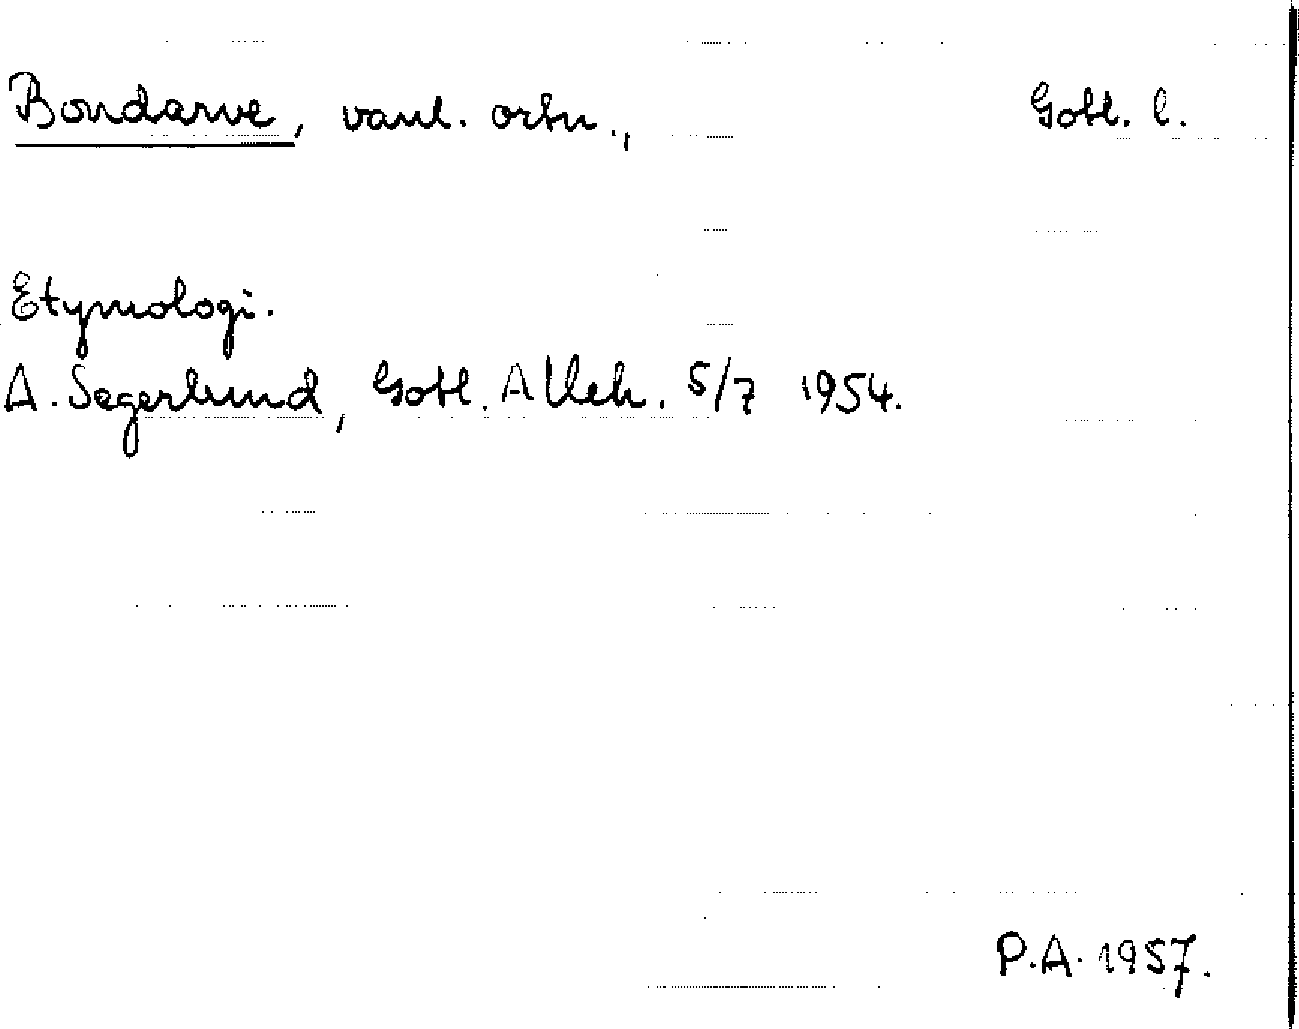 Bondarve, vanl. ortn., Gotl. l.
Etymologi.
A. Segerlund, Gotl. Alleh. 5/7 1954.
P.A. 1957.